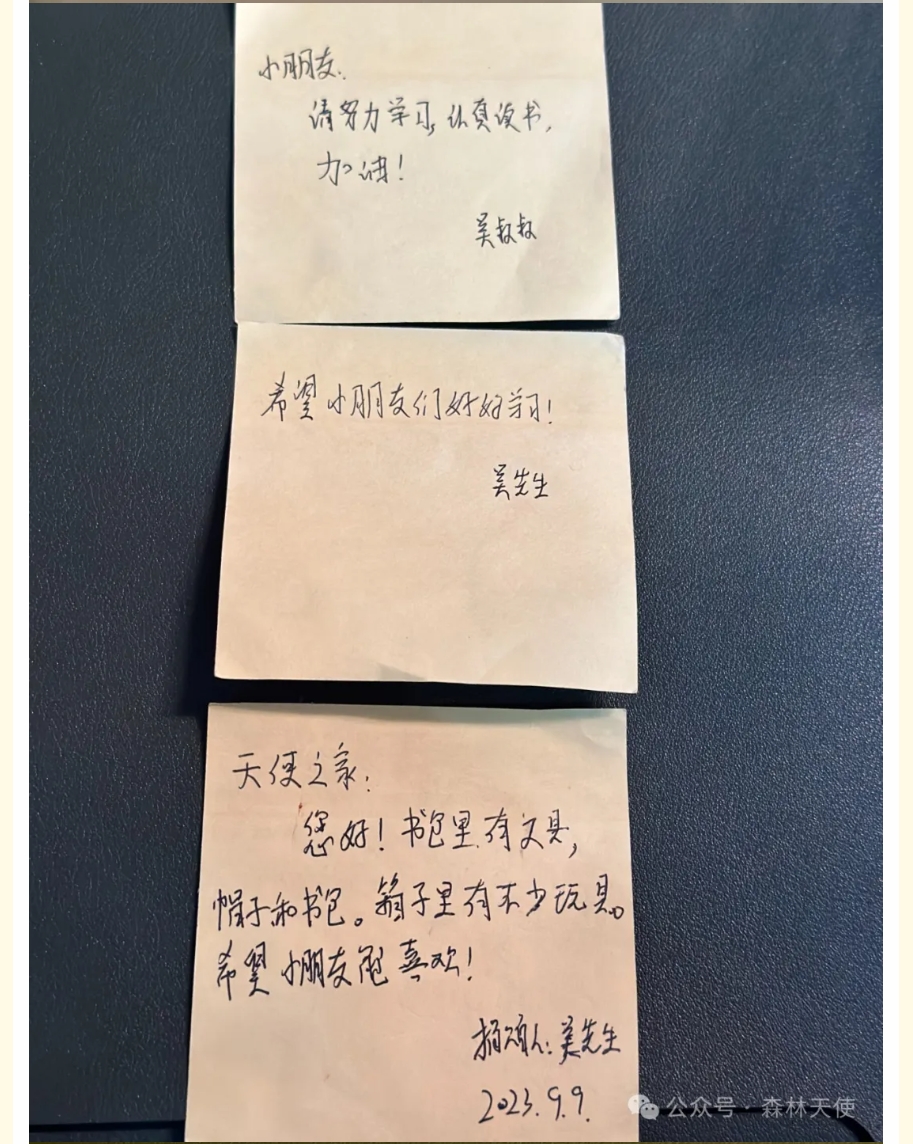 小朋友:
请努力学习,认真读书,
加油!
吴叔叔
希望小朋友们好好学习!
吴先生
天使之家:
您好!书包里有文具,
帽子和书包。箱子里有不少玩具。
希望小朋友能喜欢!
捐赠人:吴先生
2023.9.9.
公众号·森林天使